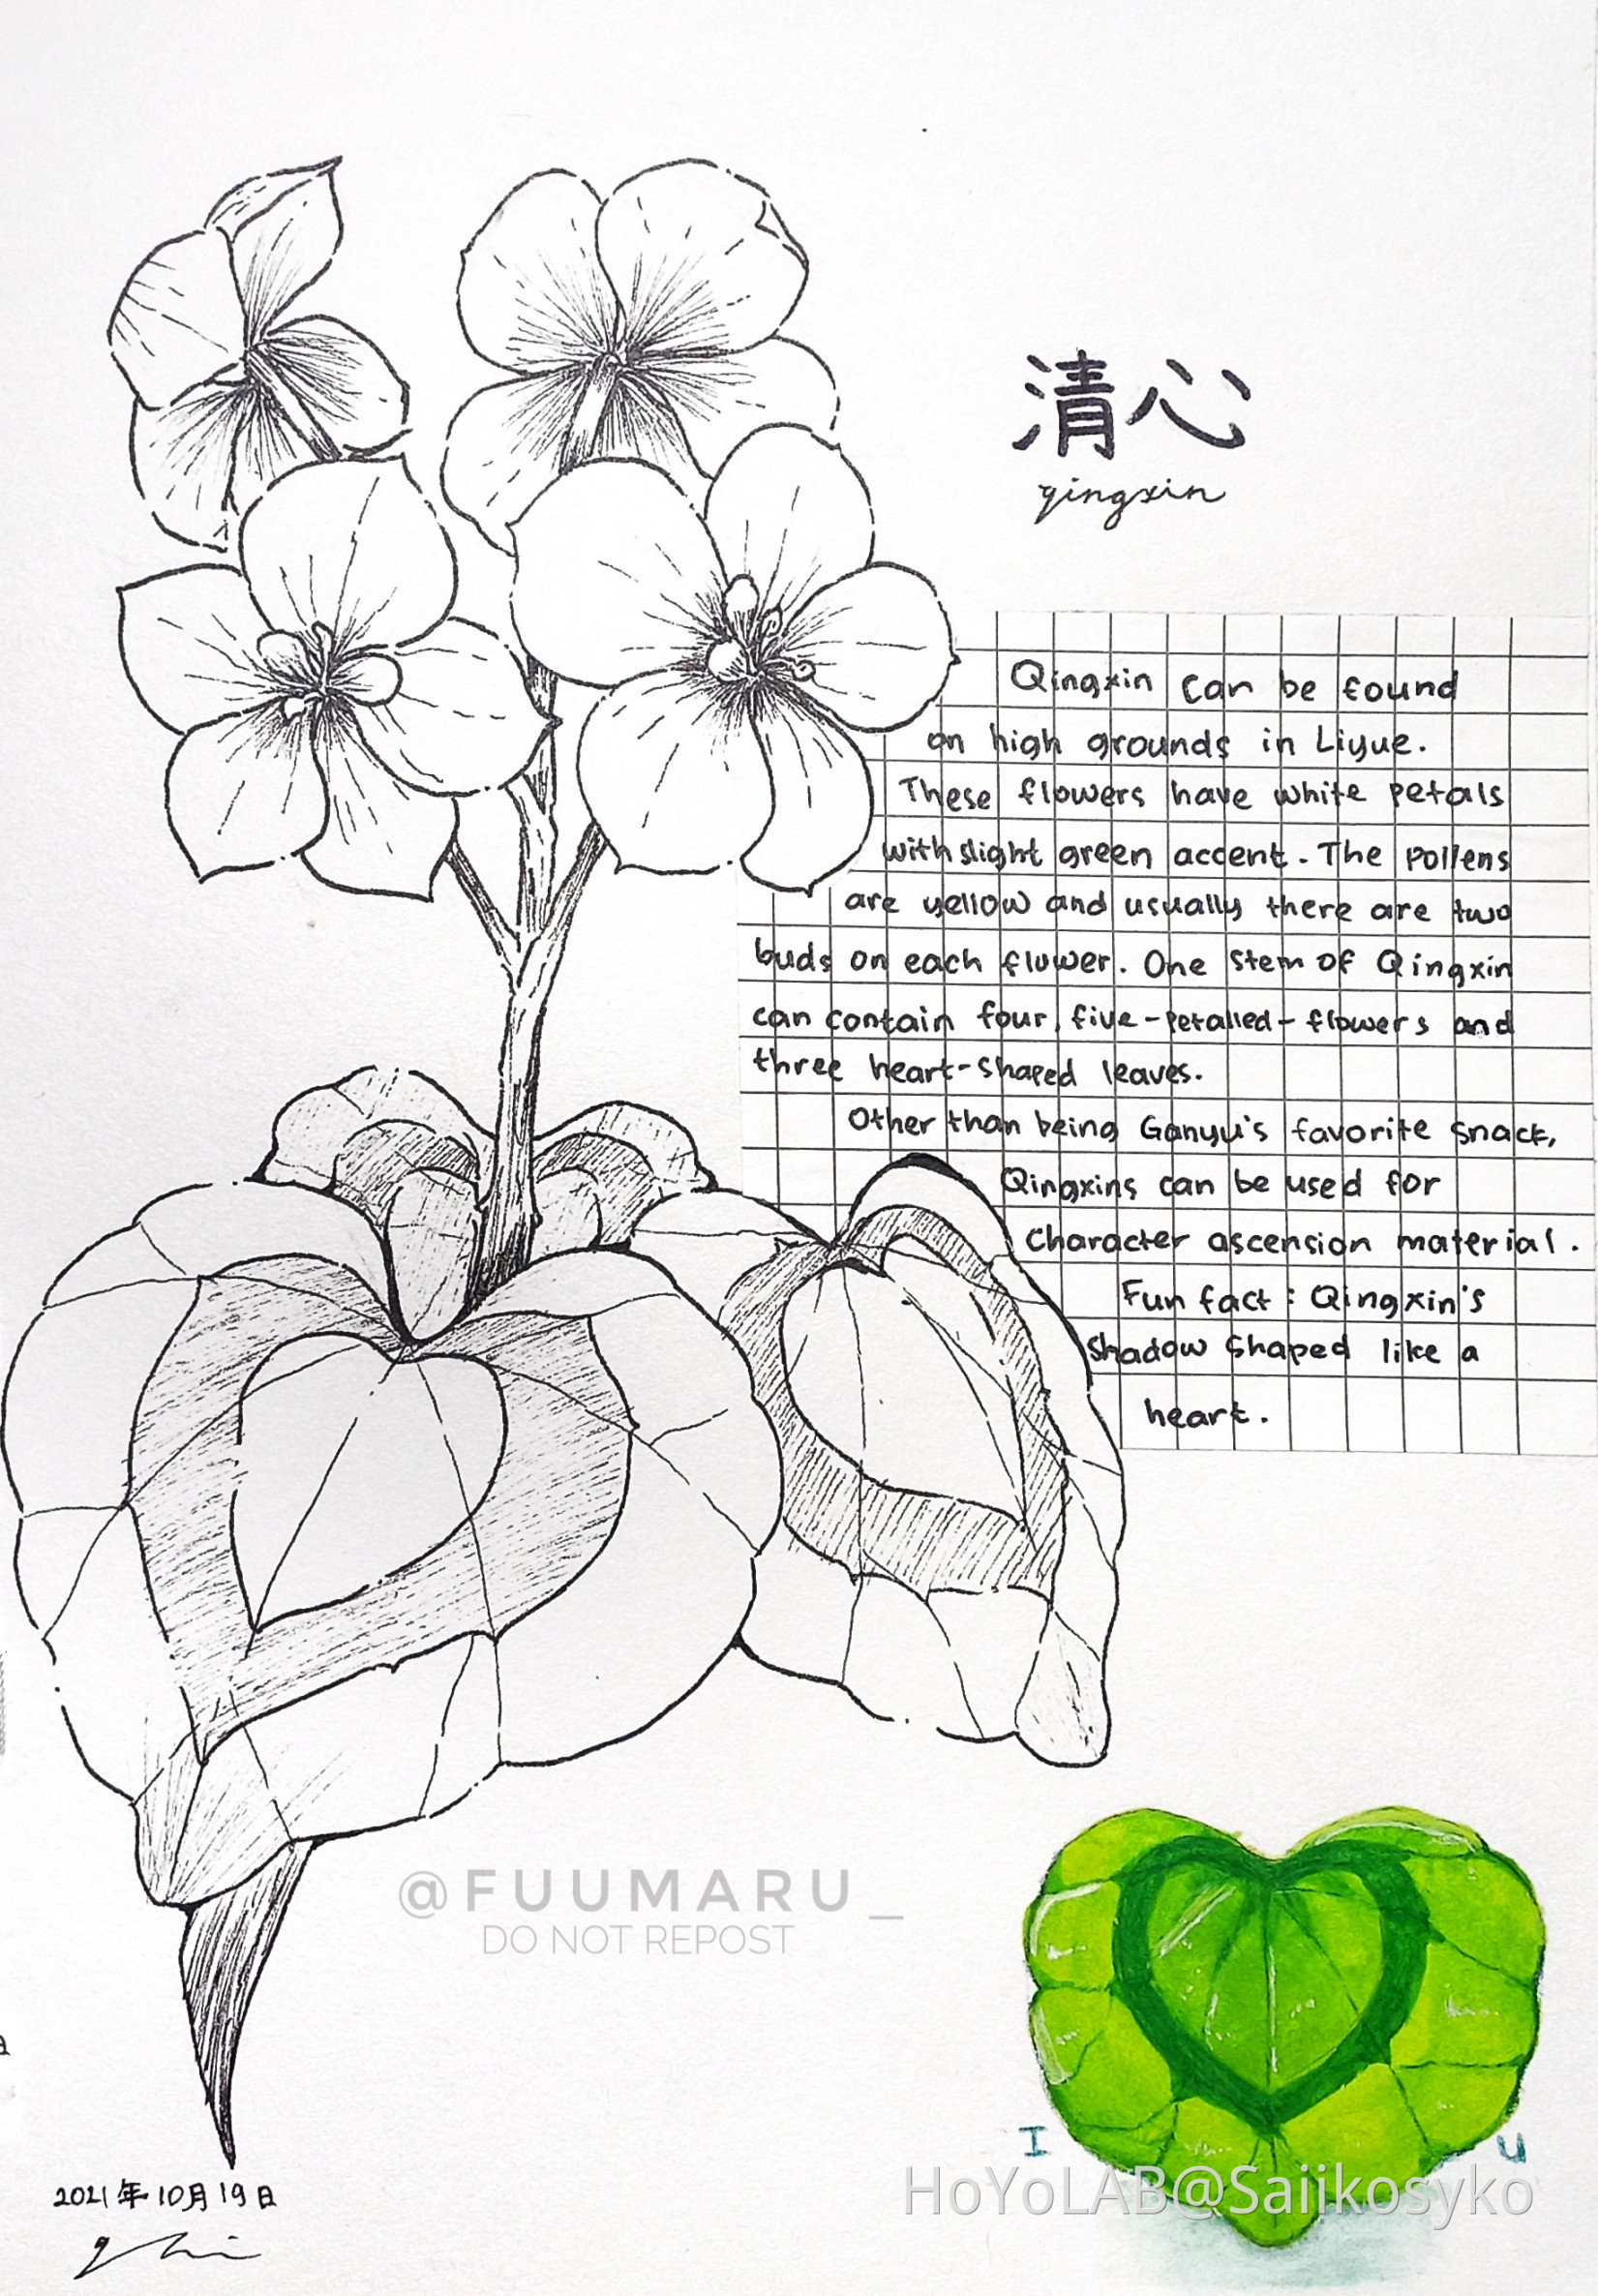 清心
qingxin
Qingxin can be found
on high grounds in Liyue.
These flowers have white petals
with slight green accent. The pollens
are yellow and usually there are two
buds on each flower. One stem of Qingxin
can contain four, five-petalled-flowers and
three heart-shaped leaves.
Other than being Ganyu's favorite snack,
Qingxins can be used for
character ascension material.
Fun fact: Qingxin's
shadow shaped like a
heart.
@FUUMARU_
DO NOT REPOST
I U
HoYoLAB@Saiikosyko
2021年10月19日